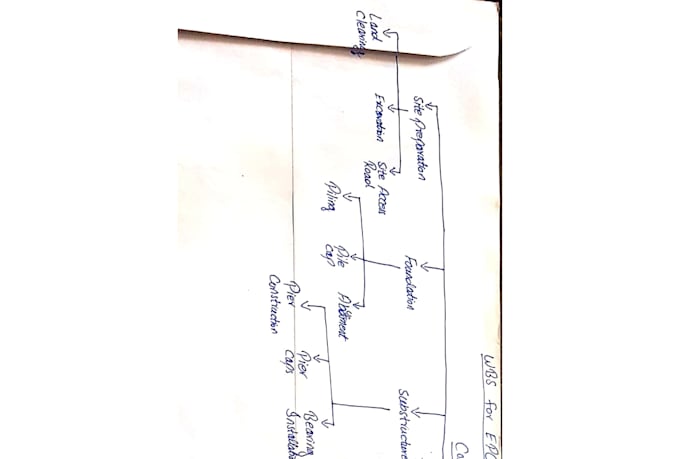 WBS for EPC
Site Preparation
Foundation
Substructure
Land
Clearing
Excavation
Site Access
Road
Piling
Pile
Cap
Abutment
Pier
Construction
Pier
Caps
Bearing